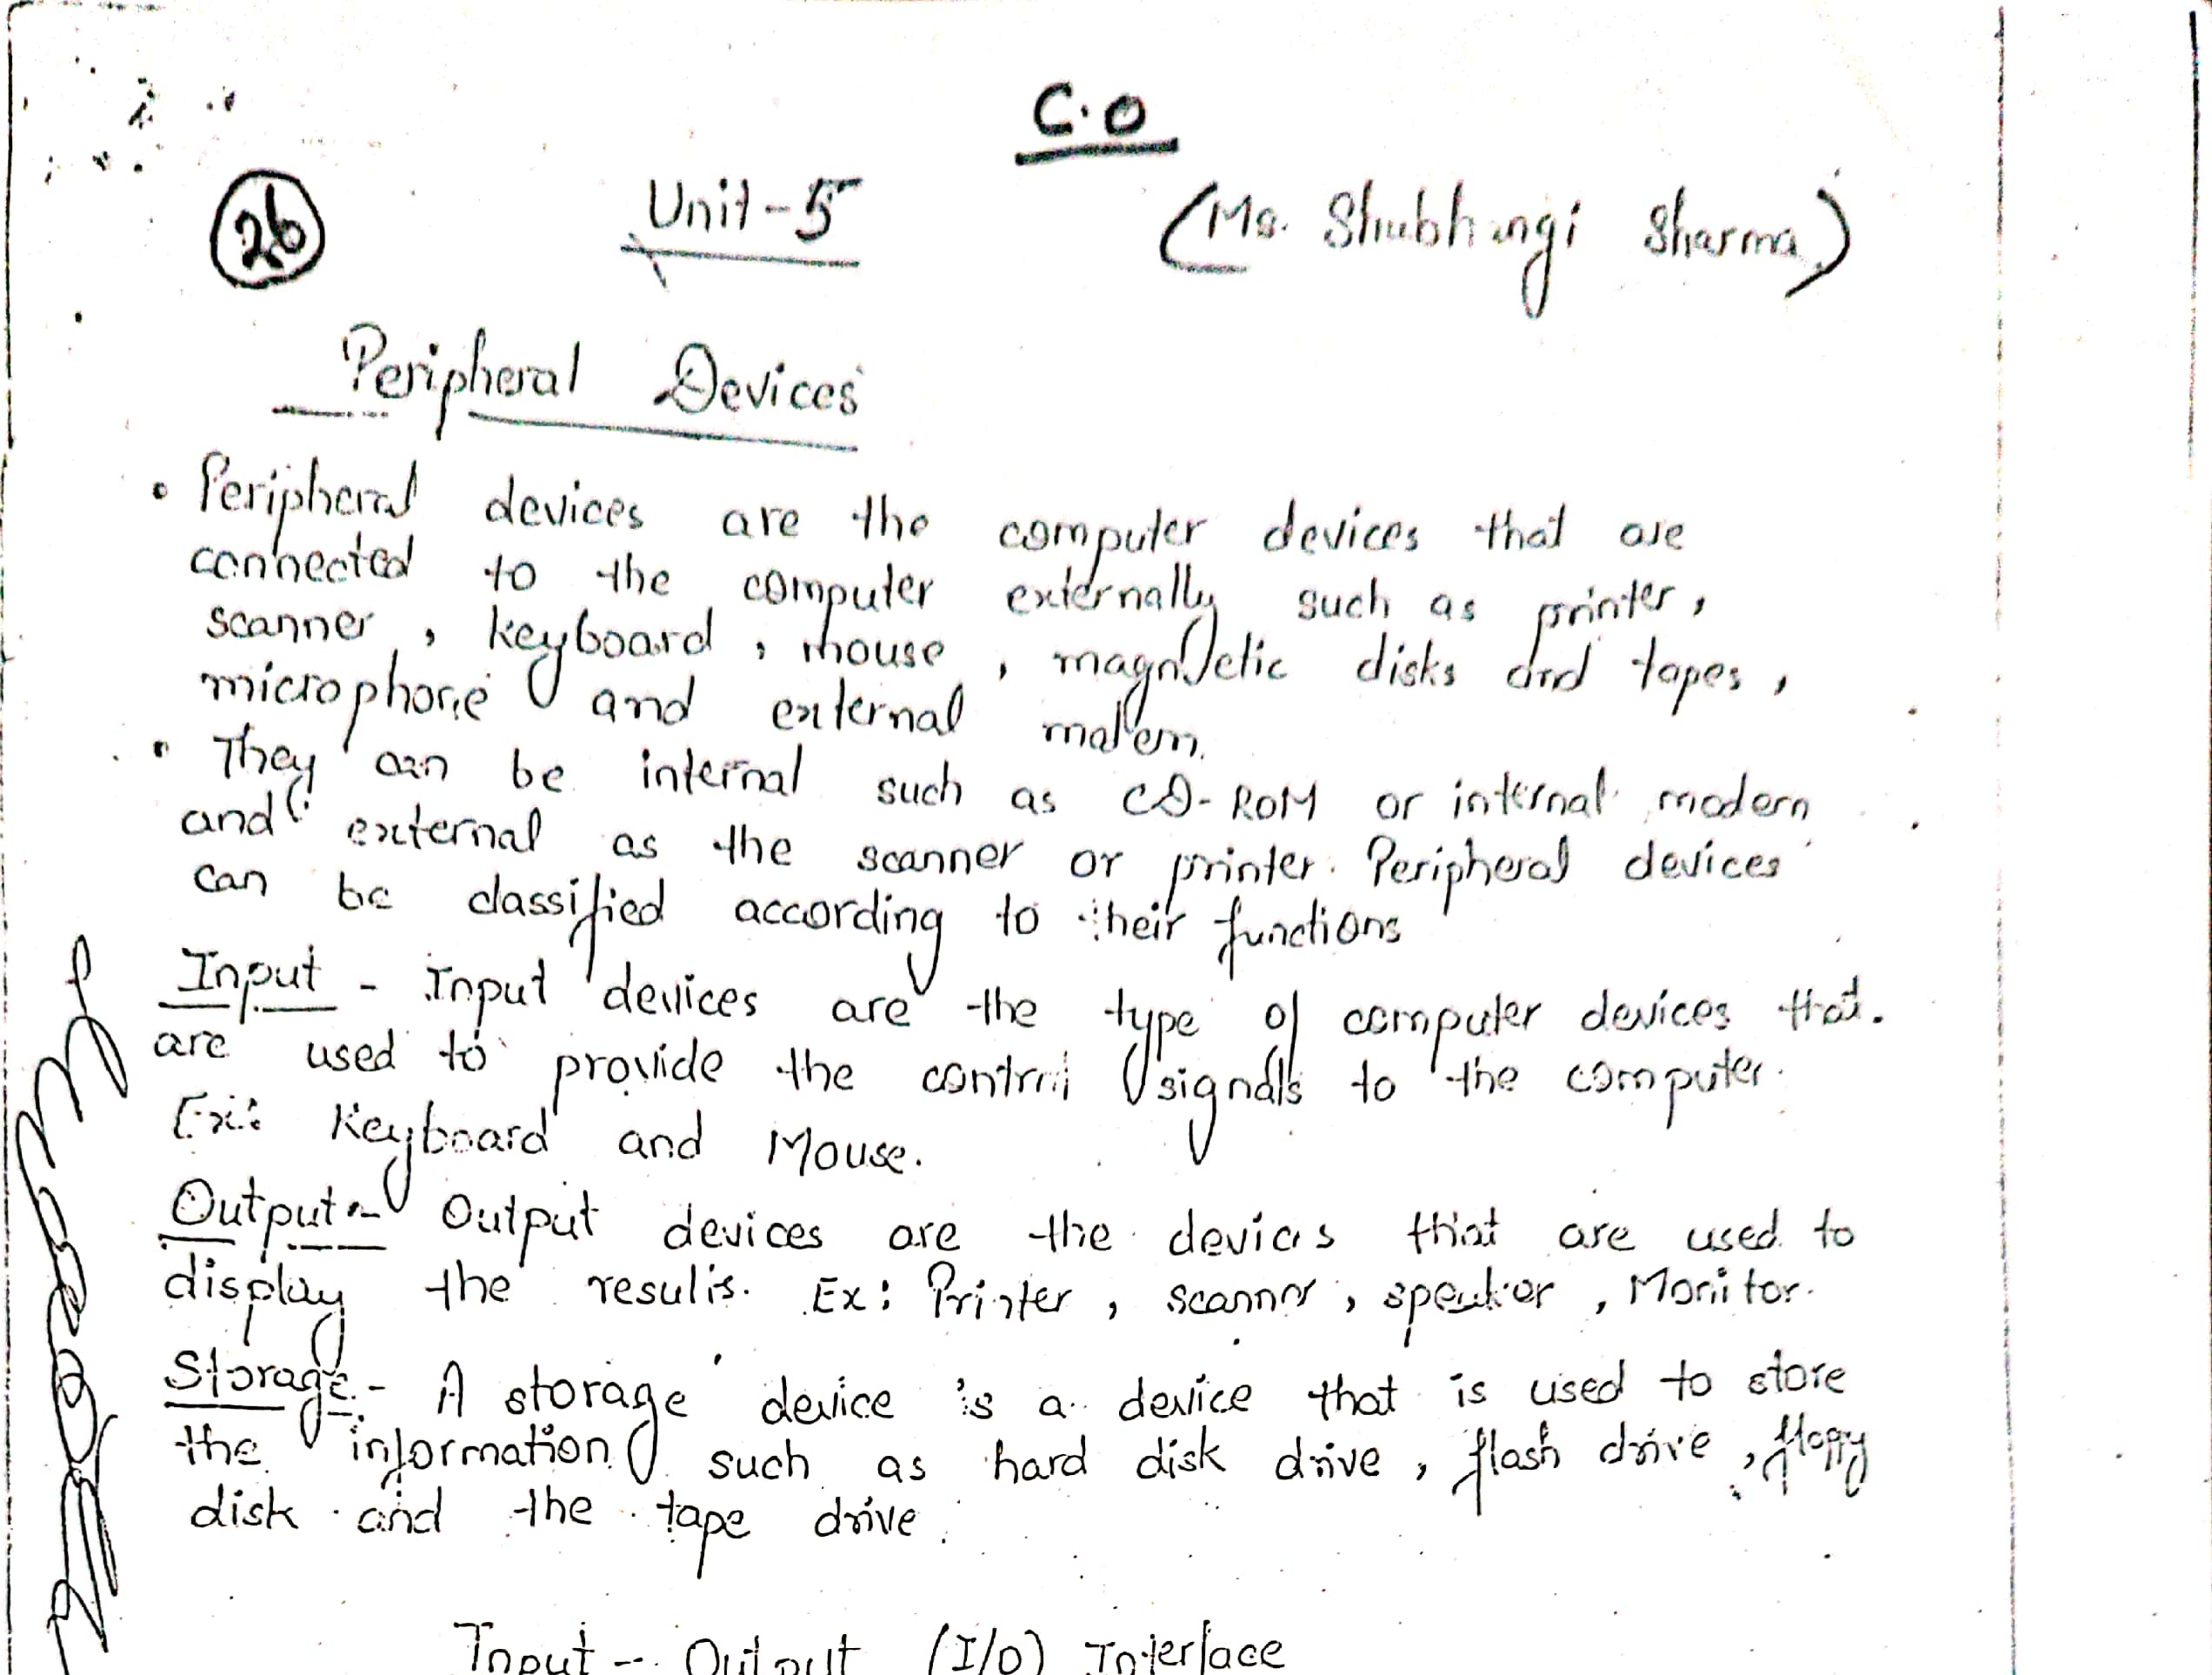 C.O
26 Unit-5 (Ms. Shubhangi Sharma)
Peripheral Devices
• Peripheral devices are the computer devices that are
connected to the computer externally such as printer,
scanner, keyboard, mouse, magnetic disks and tapes,
microphone and external modem.
• They can be internal such as CD-ROM or internal modem
and external as the scanner or printer. Peripheral devices
can be classified according to their functions
Input - Input devices are the type of computer devices that
are used to provide the control signals to the computer.
Ex: Keyboard and Mouse.
Output - Output devices are the devices that are used to
display the results. Ex: Printer, scanner, speaker, Monitor.
Storage - A storage device is a device that is used to store
the information such as hard disk drive, flash drive, floppy
disk and the tape drive.
Input - Output (I/O) Interface